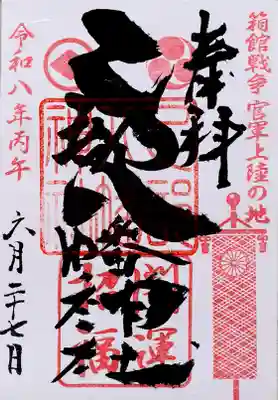 箱館戦争 官軍上陸の地
奉拝
乙部八幡神社
令和八年丙午
六月二十七日